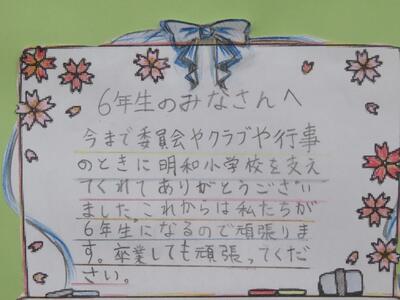 6年生のみなさんへ
今まで委員会やクラブや行事
のときに明和小学校を支え
てくれてありがとうござい
ました。これからは私たちが
6年生になるので頑張りま
す。卒業しても頑張ってくだ
さい。